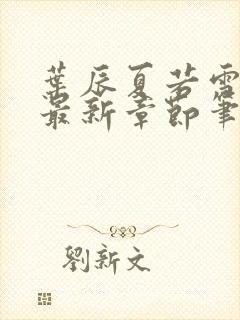 葉辰夏若雪
最新章節筆
劉新文